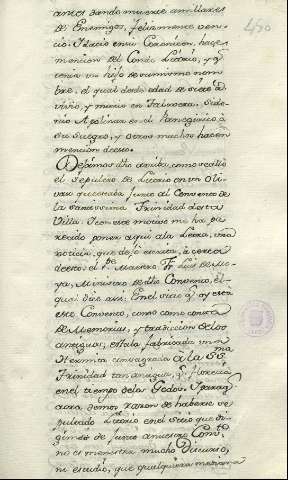 antes dando muerte a millares
de Enemigos, felizmente ven-
cio. Idacio en su Coronicon, hace
mencion del Conde Litorio, y q.
tenia un hijo de su mismo nom
bre. el qual desde edad de siete a
y murio en
nio Apolinar en el Panegirico à
su suegro, y otros muchos hacen
mencion desto.
Dejamos dho arriba, como se allò
el sepulcro de Litorio en un Oli-
var, que estaba junto al Convento de
la Santissima Trinidad desta
Villa. I con este motivo me ha pa
recido poner aqui a la Letra, una
noticia, que dejó escrita, à cerca
desto el P. Maestro Fr. Luis de
Ministro de dho Convento, el
qual dize assi: En el sitio q. oy esta
este Convento, como consta
de Memorias, y tradicion de los
antiguos, estaba fabricada una
Hermita consagrada à la SS.ma
Trinidad tan antigua, q. florecia
en el tiempo de los Godos. I para q
aora demos razon de haberse se
pultado Litorio en el sitio que di-
gimos de junto a nuestro Comb.to
no es menester mucho Discurso,
ni estudio, que qualquiera mediana